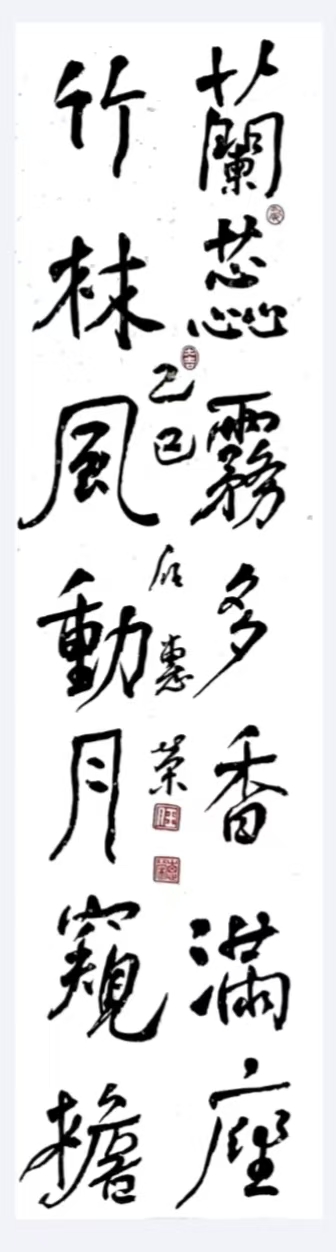 蘭蕊霧多香滿座
竹林風動月窺檐
巳
惠榮